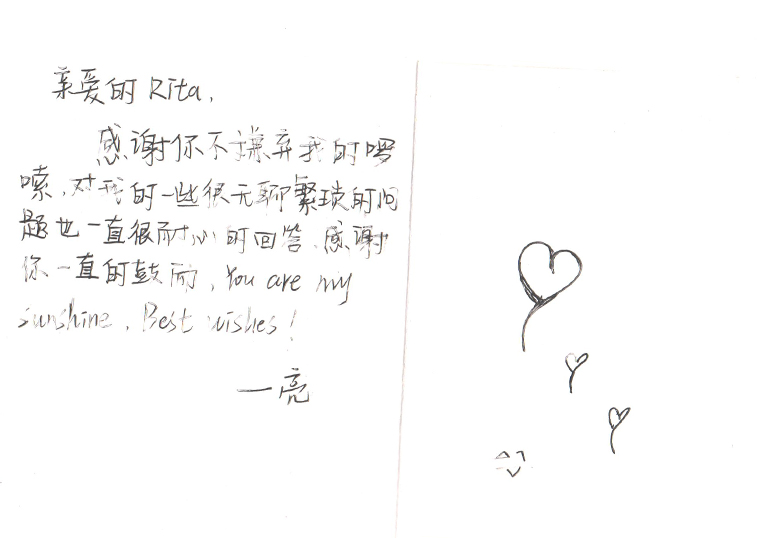 亲爱的 Rita,
感谢你不谦弃我的啰
嗦,对我的一些很无聊繁琐的问
题也一直很耐心的回答、感谢
你一直的鼓励, You are my
sunshine. Best wishes!
一亮